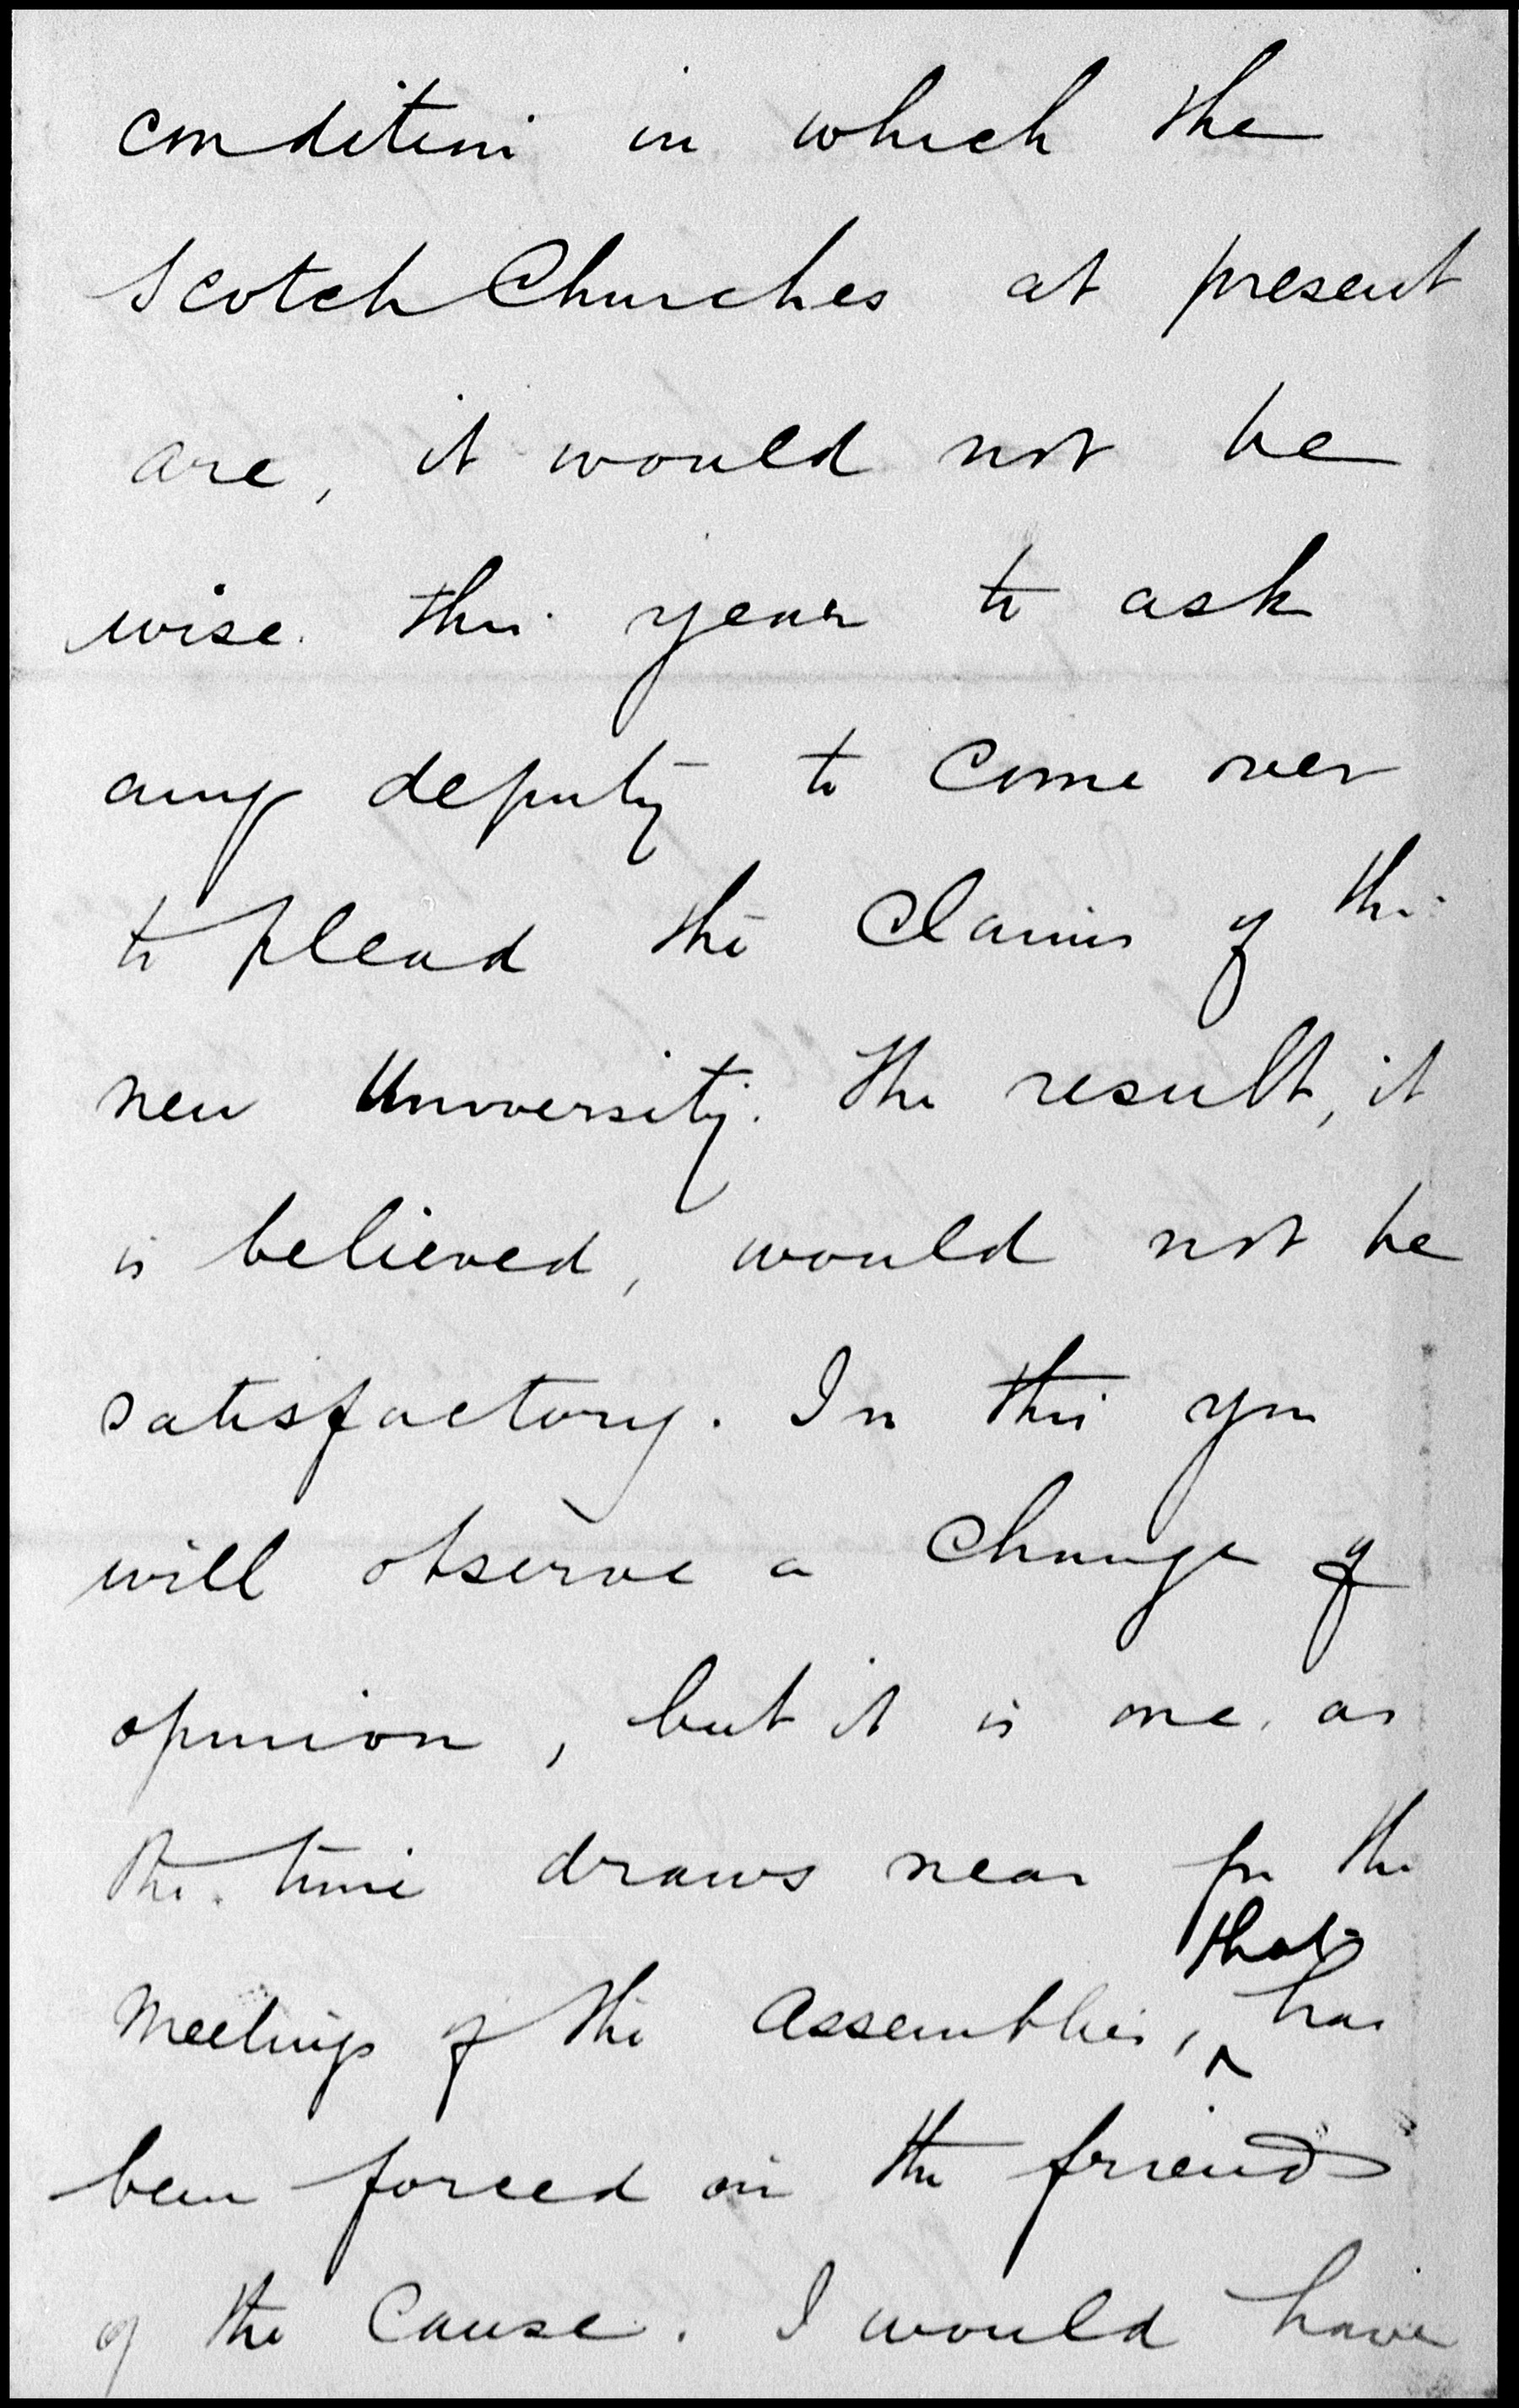 condition in which the
Scotch Churches at present
are, it would not be
wise this year to ask
any deputy to come over
to plead the claims of the
new University. The result, it
is believed, would not be
satisfactory. In this you
will observe a change of
opinion, but it is one, as
the time draws near for the
that
Meetings of the Assemblies, ^ has
been forced on the friends
of the Cause. I would have